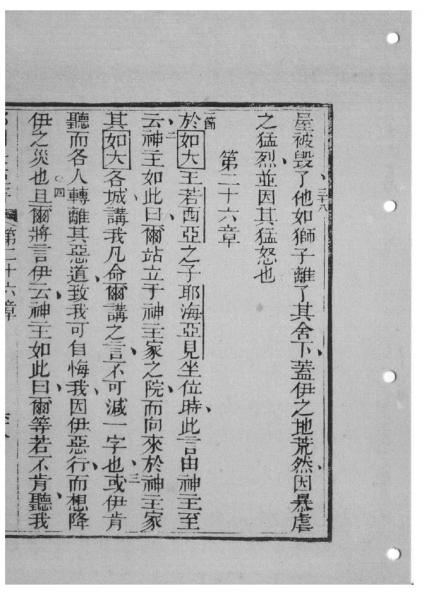 屋被毀了三十八他如獅子離了其舍下蓋伊之地荒然因暴虐
之猛烈並因其猛怒也
第二十六章
一節於如大王若西亞之子耶海亞見坐位時此言由神主至
云二神主如此曰爾站立于神主家之院而向來於神主家
其如大各城講我凡命爾講之言不可減一字也三或伊肯
聽而各人轉離其惡道致我可自悔我因伊惡行而想降
伊之災也四且爾將言伊云神主如此曰爾等若不肯聽我
第二十六章